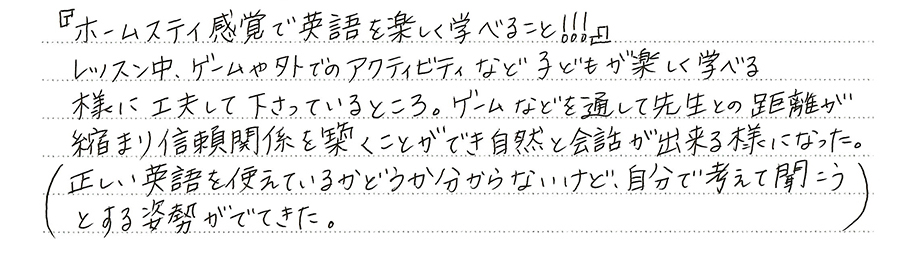 『ホームスティ感覚で英語を楽しく学べること!!!』
レッスン中、ゲームや外でのアクティビティなど子どもが楽しく学べる
様に工夫して下さっているところ。ゲームなどを通して先生との距離が
縮まり信頼関係を築くことができ自然と会話が出来る様になった。
(正しい英語を使えているかどうか分からないけど、自分で考えて聞こう
とする姿勢がでてきた。)